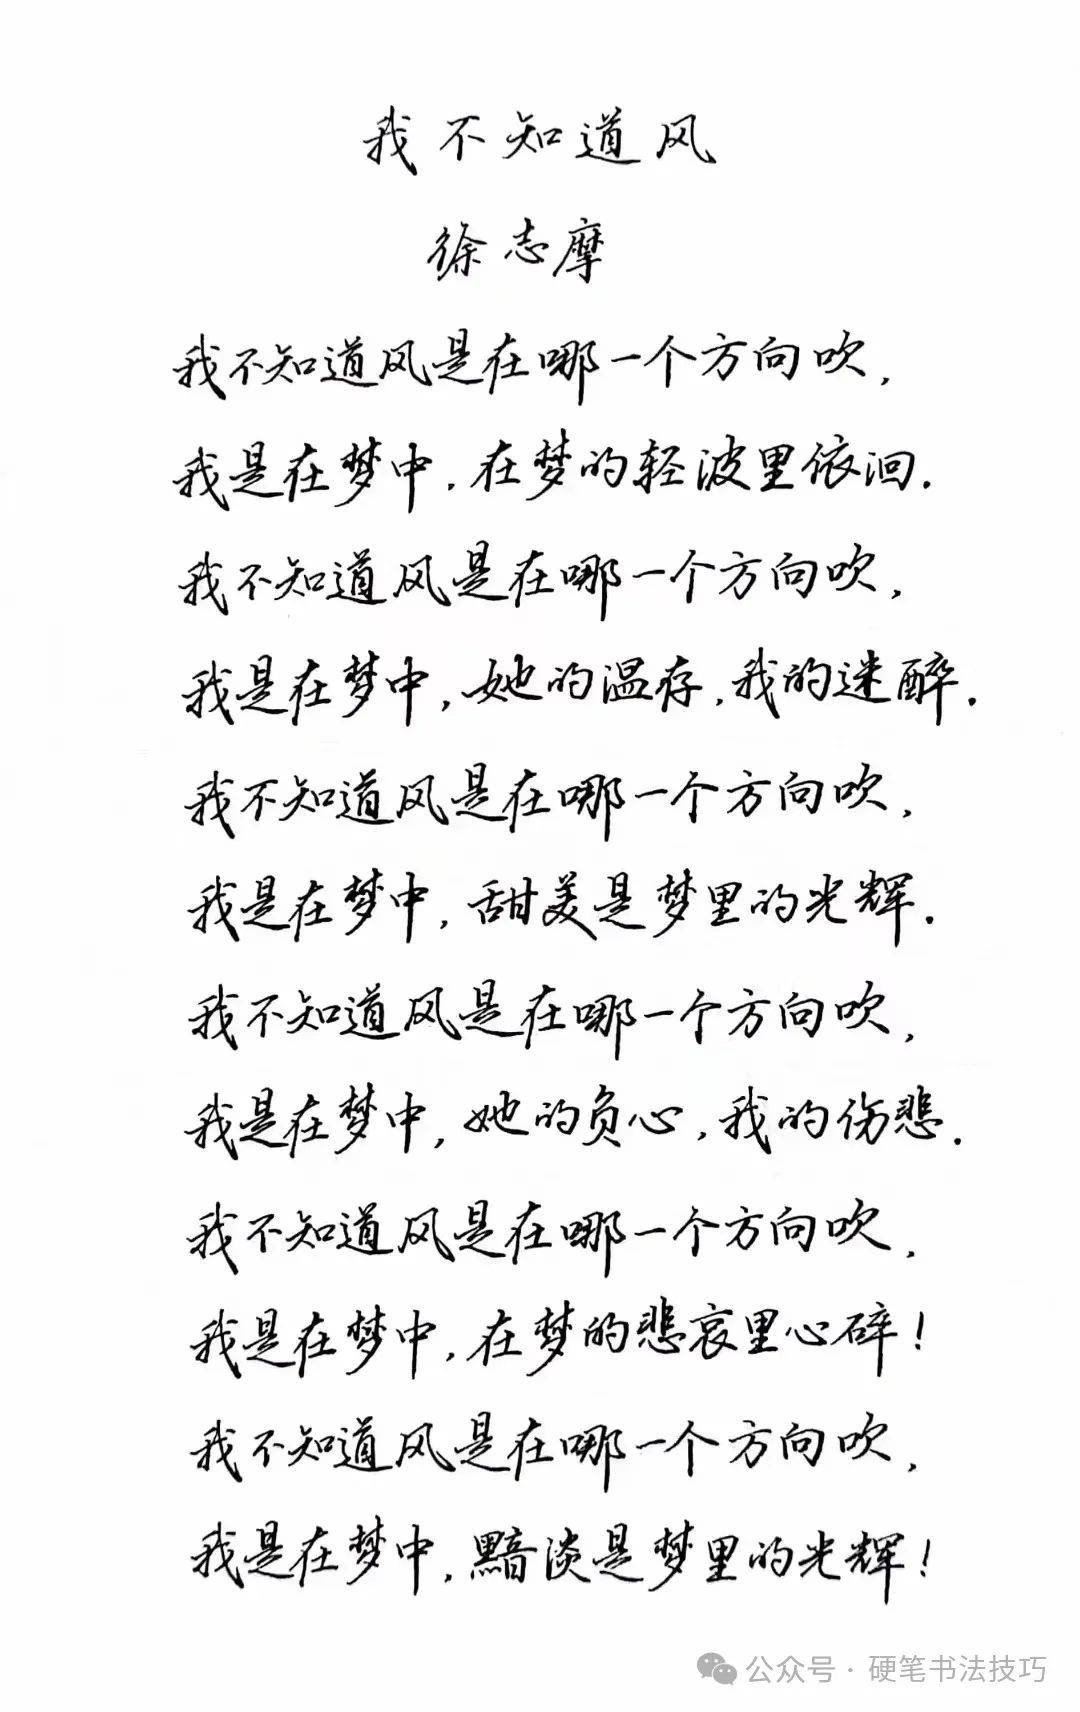 我不知道风
徐志摩
我不知道风是在哪一个方向吹，
我是在梦中，在梦的轻波里依洄．
我不知道风是在哪一个方向吹，
我是在梦中，她的温存，我的迷醉．
我不知道风是在哪一个方向吹，
我是在梦中，甜美是梦里的光辉．
我不知道风是在哪一个方向吹，
我是在梦中，她的负心，我的伤悲．
我不知道风是在哪一个方向吹，
我是在梦中，在梦的悲哀里心碎！
我不知道风是在哪一个方向吹，
我是在梦中，黯淡是梦里的光辉！
公众号·硬笔书法技巧